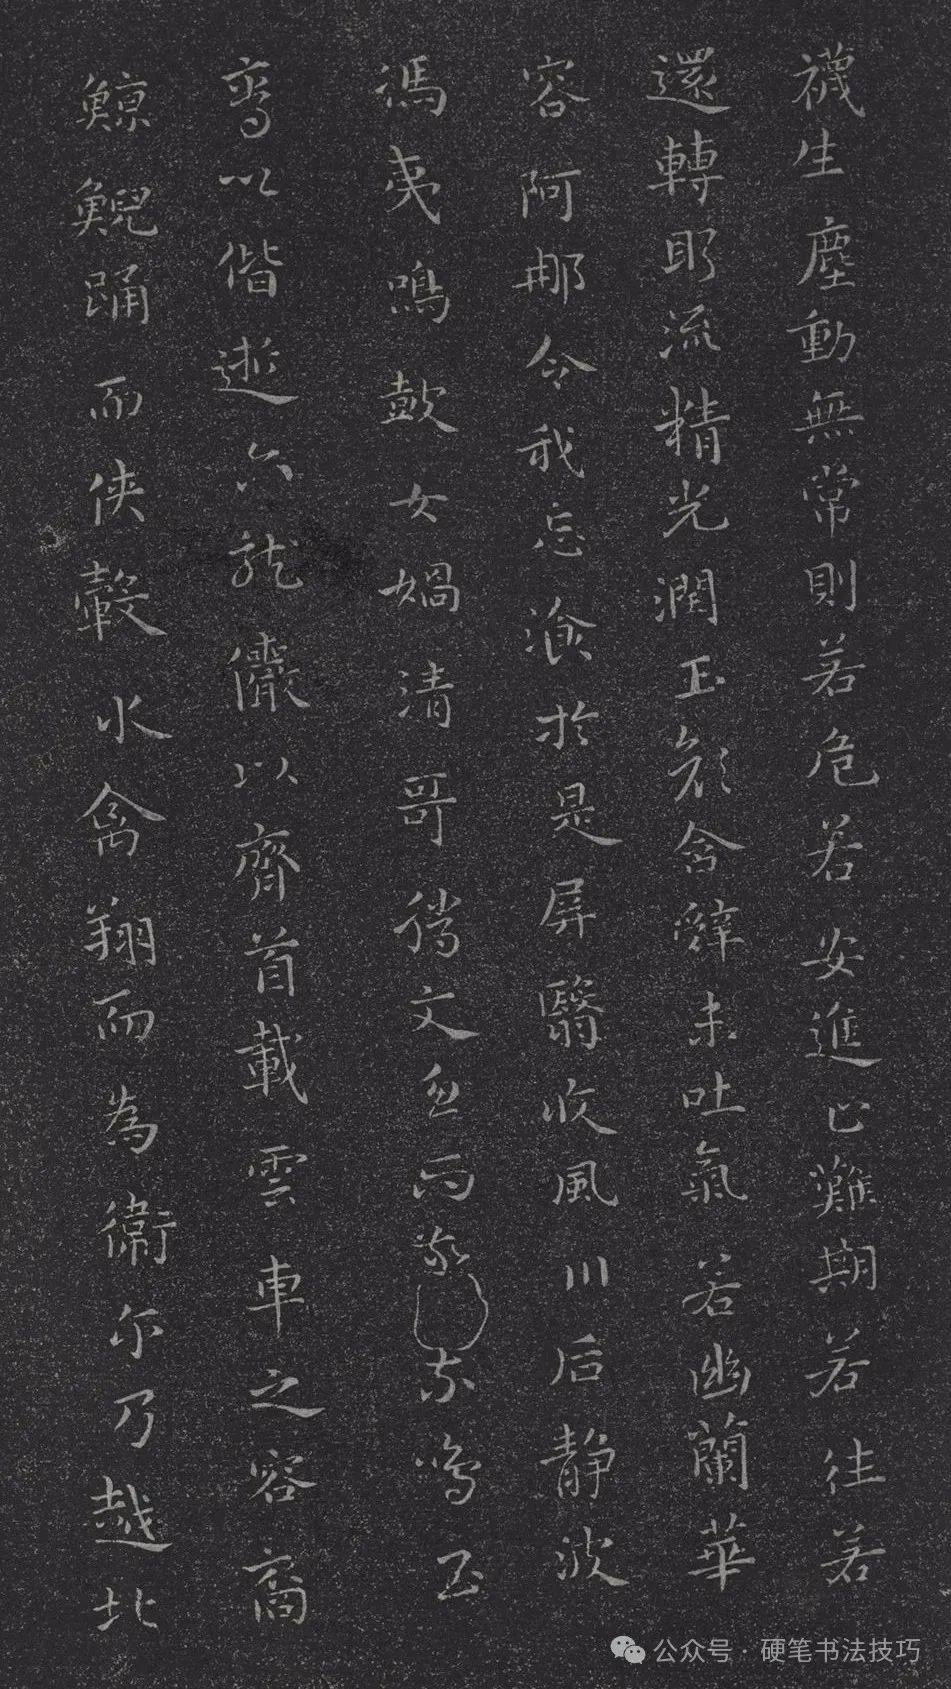 襪生塵動無常則若危若安進止難期若往若
還轉眄流精光潤玉顏含辭未吐氣若幽蘭華
容阿那令我忘飡於是屏翳收風川后静波
馮夷鳴鼓女媧清哥騰文魚而警乘鳴玉
鸞以偕逝六龍儼以齊首載雲車之容裔
鯨鯢踊而俠轂水禽翔而為衛尒乃越北
公众号·硬笔书法技巧